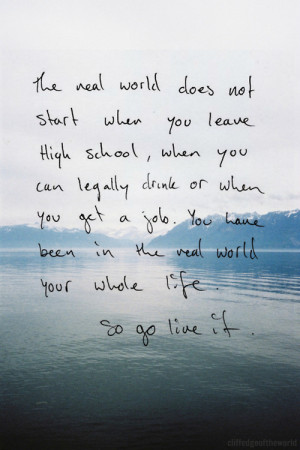 the real world does not
start when you leave
High school, when you
can legally drink or when
you get a job. You have
been in the real world
your whole life.
So go live it.